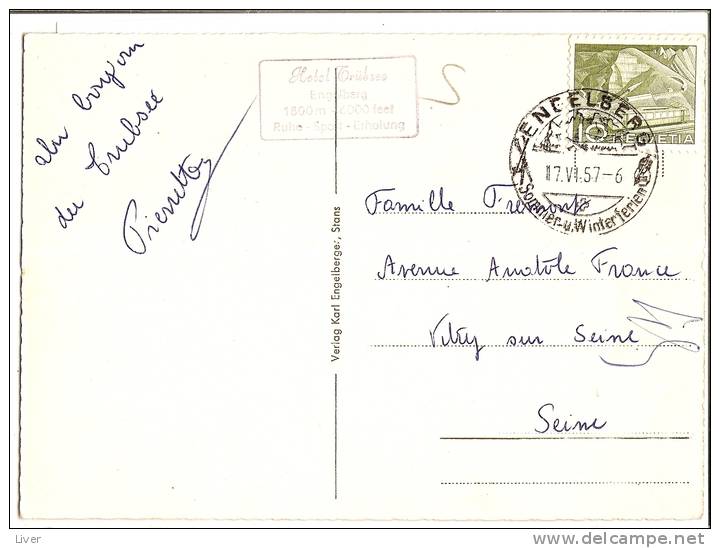 un bonjour
du Trubsee
Pierrette
Hotel Trübsee
Engelberg
1800 m - 6000 feet
Ruhe - Sport - Erholung
HELVETIA
10
ENGELBERG
17.VI.57-6
Sommer- u. Winterferien
Verlag Karl Engelberger, Stans
Famille
Avenue Anatole France
Vitry sur Seine
Seine
Liver
www.delcampe.net